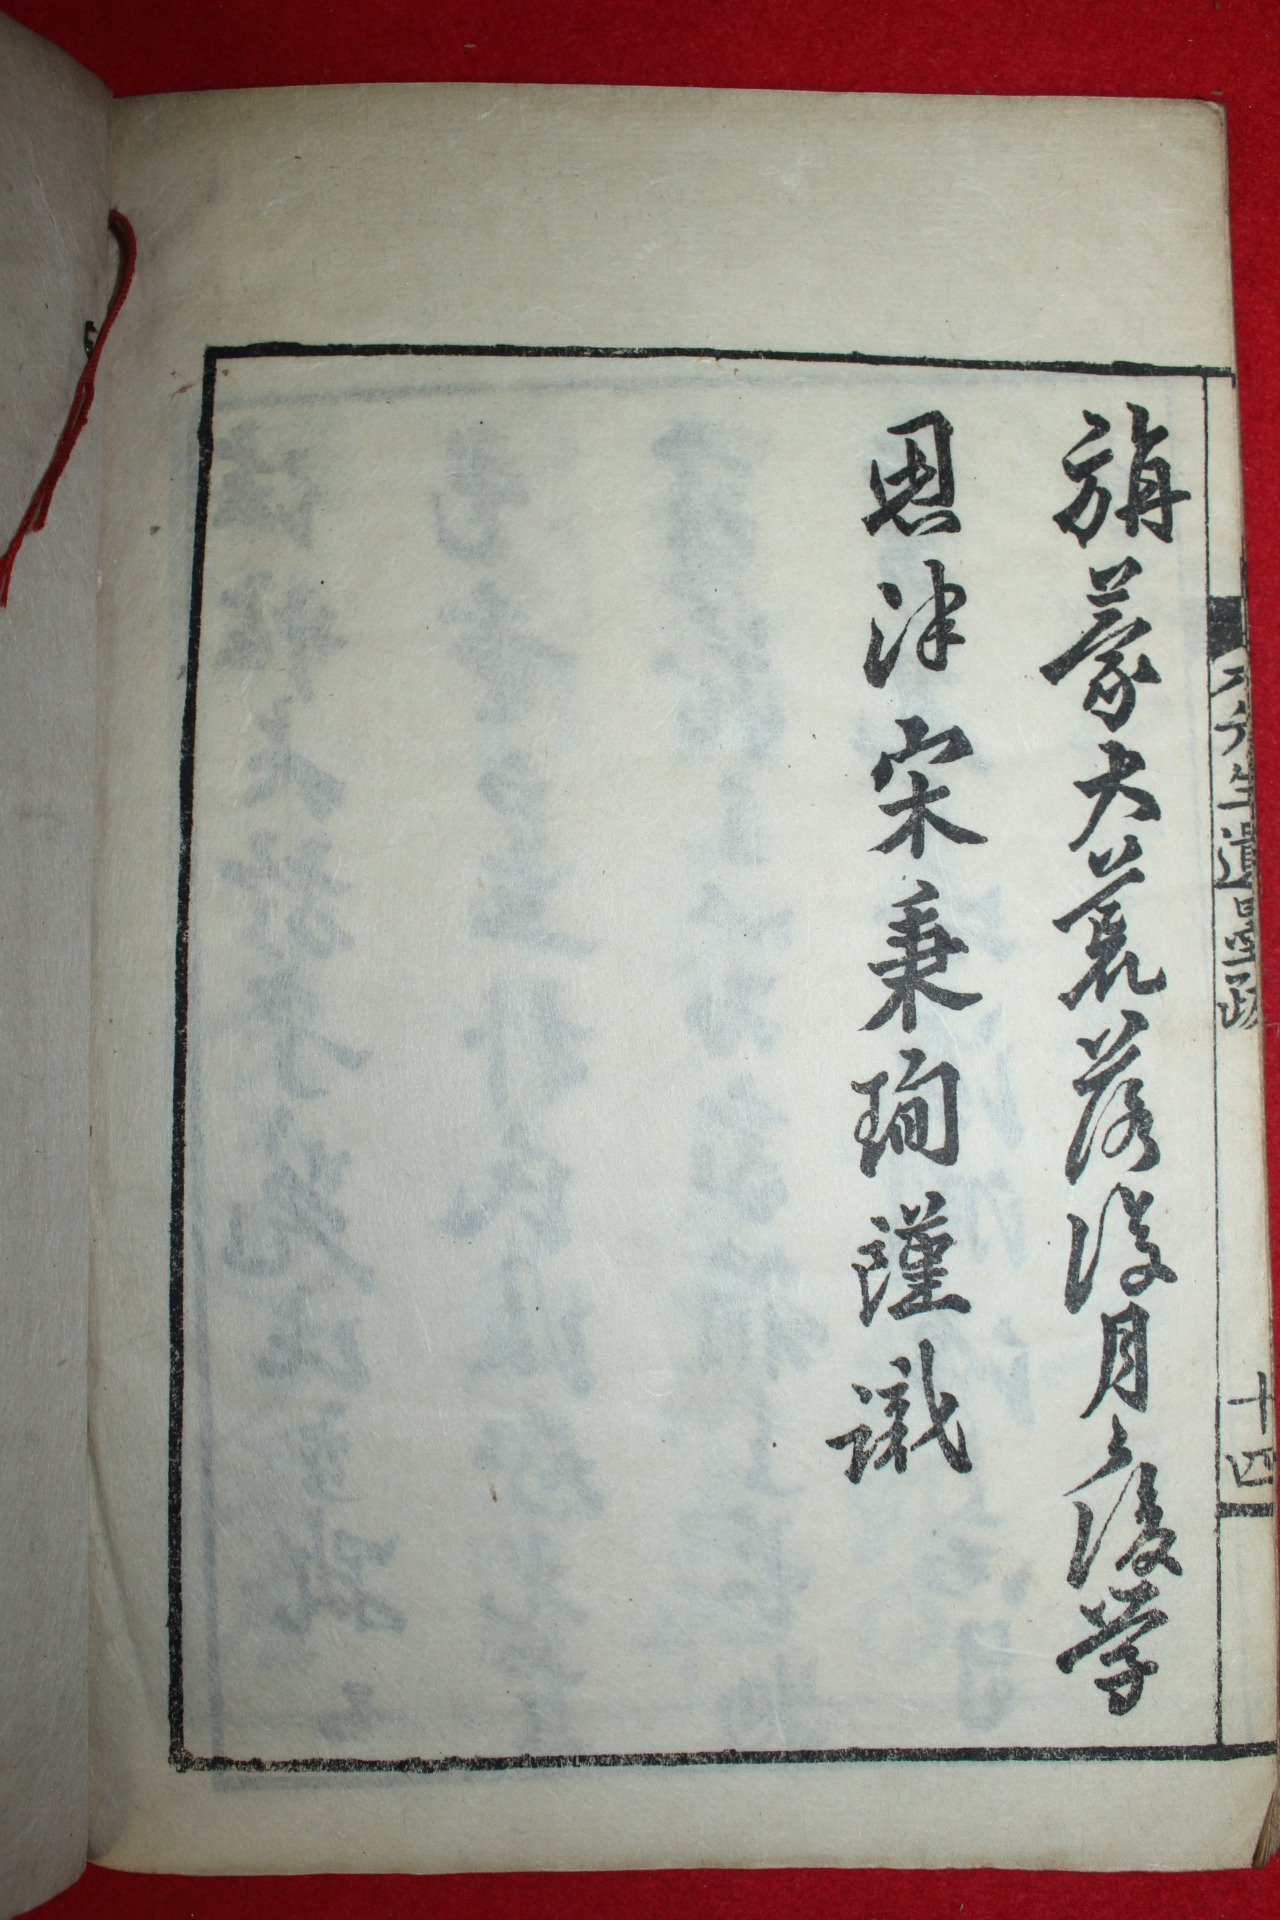 旃蒙大荒落復月之後學
恩津宋秉珣謹識
遺墨跋
十四